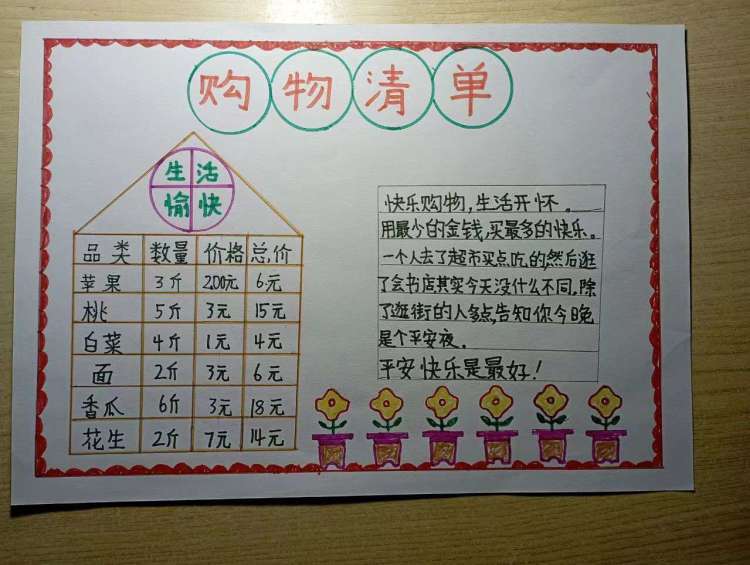 购物清单
生活
愉快
品类 数量 价格 总价
苹果 3斤 2.00元 6元
桃 5斤 3元 15元
白菜 4斤 1元 4元
面 2斤 3元 6元
香瓜 6斤 3元 18元
花生 2斤 7元 14元
快乐购物,生活开怀。
用最少的金钱,买最多的快乐。
一个人去了超市买点吃的,然后逛
了会书店其实今天没什么不同,除
了逛街的人多点,告知你今晚
是个平安夜。
平安快乐是最好!